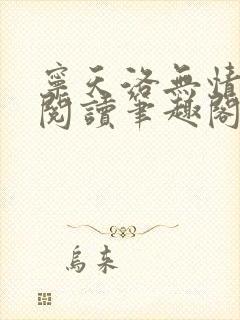 寧天洛無情
閱讀筆趣閣
烏來